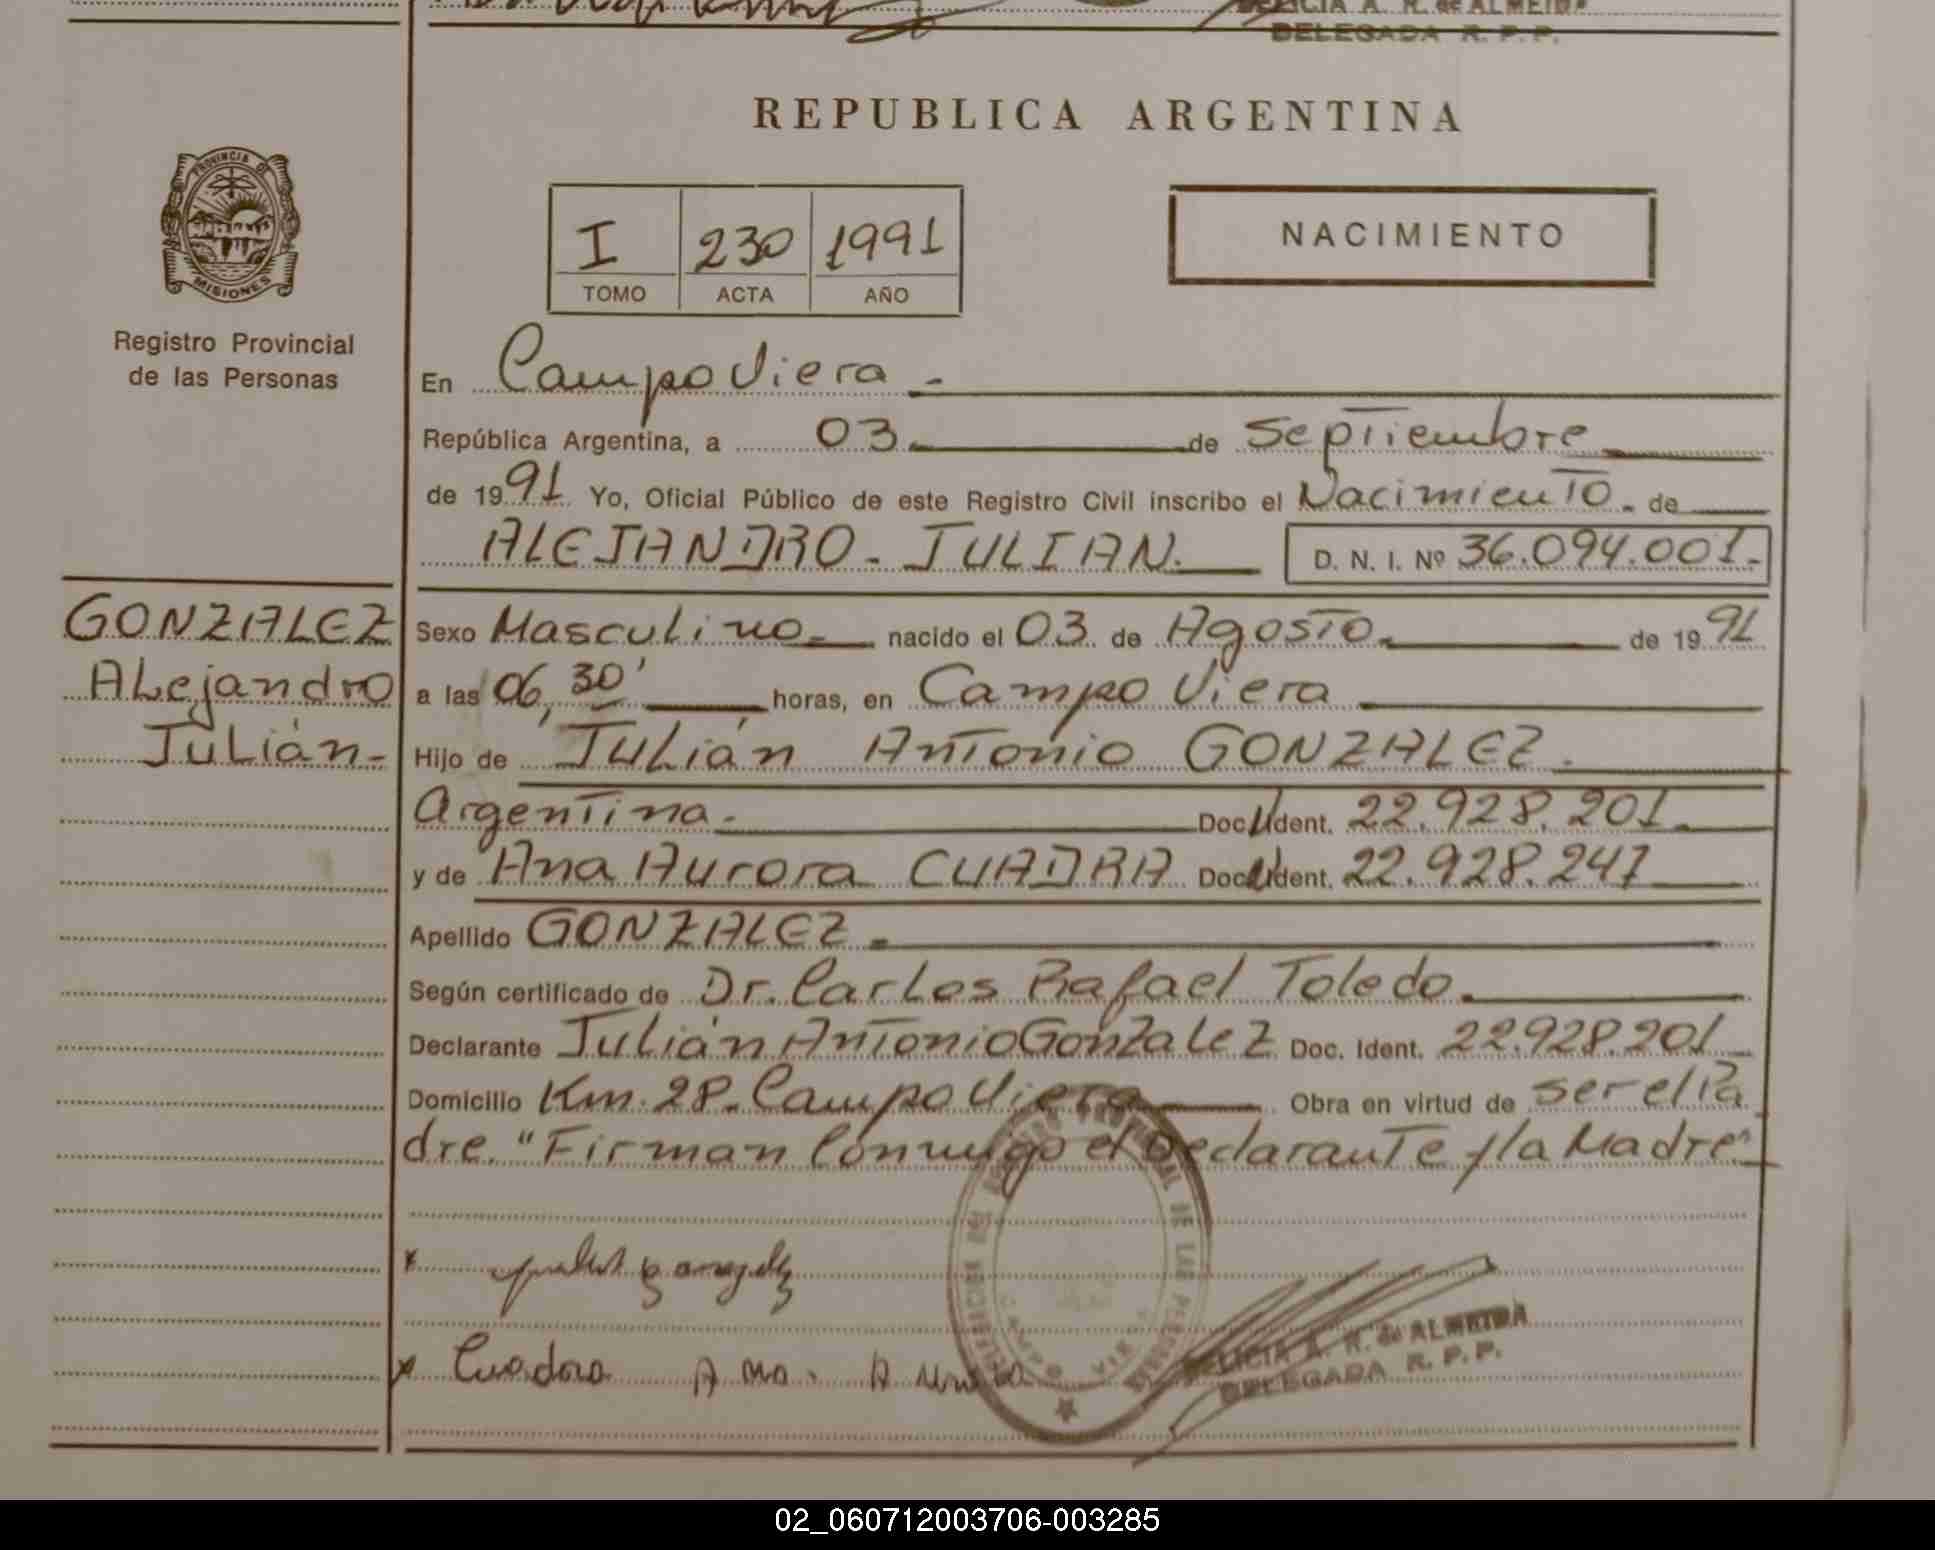 FELICIA A. R. de ALMEIDA
DELEGADA R. P. P.
REPUBLICA ARGENTINA
PROVINCIA DE MISIONES
Registro Provincial
de las Personas
I 230 1991
TOMO ACTA AÑO
NACIMIENTO
En Campo Viera -
República Argentina, a 03. de Septiembre
de 1991 Yo, Oficial Público de este Registro Civil inscribo el Nacimiento. de
ALEJANDRO - JULIAN. D. N. I. Nº 36.094.001.-
GONZALEZ
Alejandro
Julián-
Sexo Masculino.- nacido el 03 de Agosto. de 1991
a las 06,30' horas, en Campo Viera
Hijo de Julián Antonio GONZALEZ.
Argentina.- Doc. Ident. 22.928.201.-
y de Ana Aurora CUADRA Doc. Ident. 22.928.247
Apellido GONZALEZ.
Según certificado de Dr. Carlos Rafael Toledo.
Declarante Julián Antonio Gonzalez Doc. Ident. 22.928.201
Domicilio Km. 28. Campo Viera Obra en virtud de ser el Pa
dre. "Firman Conmigo el Declarante y la Madre"
x
x Cuadra Ana.
CAMPO VIERA
DE LAS PERSONAS
FELICIA A. R. de ALMEIDA
DELEGADA R. P. P.
02_060712003706-003285